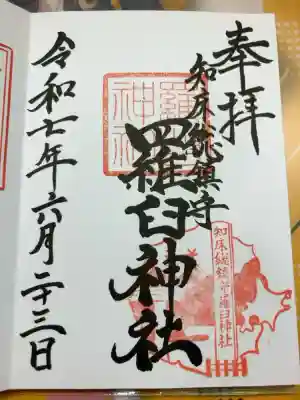 奉拝
知床総鎮守
羅臼神社
羅臼神社
知床総鎮守羅臼神社
令和七年六月二十三日